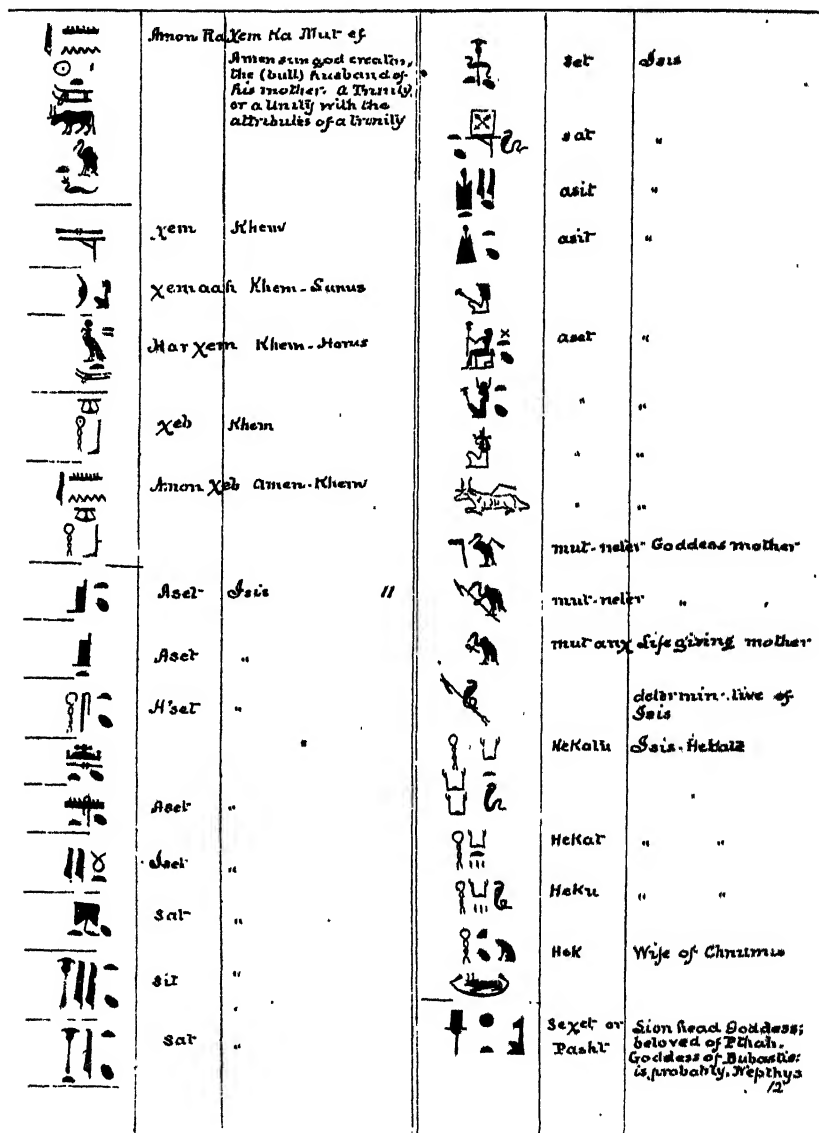 Amon Ra χem Ka Mut ef
Amen sun god creator,
the (bull) husband of
his mother. a Trinity
or a Unity with the
attributes of a trinity
χem Khem
χem aah Khem-Sunus
Har χem Khem-Horus
χeb Khem
Amon χeb Amen-Khem
Aset Isis "
Aset "
H'set "
"
Aset "
Iset "
Sat "
Sit "
Sat "
set Isis
sat "
asit "
asit "
aset "
" "
" "
" "
mut-neter Goddess mother
mut-neter "
mut anχ Life giving mother
determin.tive of
Isis
HeKatu Isis-Hekate
HeKat " "
HeKu " "
HeK Wife of Chnumis
Seχet or Lion head Goddess;
Pasht beloved of Pthah.
Goddess of Bubastis:
is probably, Nepthys
12